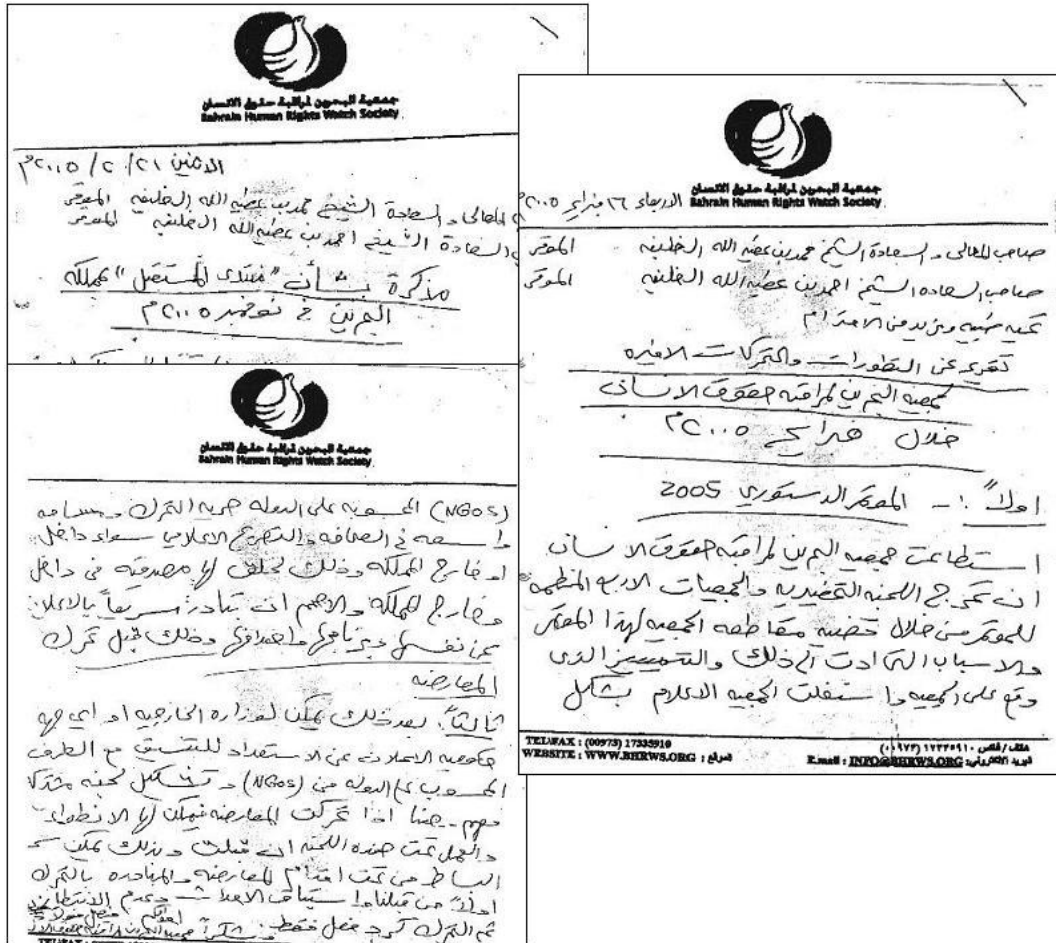 جمعية البحرين لمراقبة حقوق الانسان
Bahrain Human Rights Watch Society
الاثنين ٢١/٢/٢٠٠٥م
المعالي والسعادة الشيخ محمد بن عطية الله الخليفة الموقر
السعادة الشيخ احمد بن عطية الله الخليفة الموقر
مذكرة بشأن "منتدى المستقبل" بمملكة
البحرين في نوفمبر ٢٠٠٥م
جمعية البحرين لمراقبة حقوق الانسان
Bahrain Human Rights Watch Society
(NGOs) المحسوبة على الدولة حرية التحرك ومساحة
واسعة في الصحافة والتصريح الاعلامي سواء داخل
او خارج المملكة وذلك لخلق لها مصداقية في داخل
وخارج المملكة والاهم ان تبادر سريعاً بالاعلان
عن نفسها وبرنامجها واهدافها وذلك قبل تحرك
المعارضة
ثالثاً: بعد ذلك يمكن لوزارة الخارجية او اي جهة
حكومية الاعلان عن الاستعداد للتنسيق مع الطرف
المحسوب على الدولة من (NGOs) وتشكيل لجنة
اذا تحركت المعارضة فيمكن لها الانطواء
والعمل تحت هذه اللجنة ان قبلت وبذلك يمكن سحب
البساط من تحت اقدام المعارضة والمبادرة بالتحرك
اولاً من قبلنا واستباق الاحداث وعدم الانتظار
ثم التحرك كرد فعل فقط
جمعية البحرين لمراقبة حقوق الانسان
Bahrain Human Rights Watch Society
الاربعاء ١٦ فبراير ٢٠٠٥م
صاحب المعالي والسعادة الشيخ محمد بن عطية الله الخليفة الموقر
صاحب السعادة الشيخ احمد بن عطية الله الخليفة الموقر
تحية طيبة ومزيد من الاحترام
تقرير عن التطورات والتحركات الاخيرة
لجمعية البحرين لمراقبة حقوق الانسان
خلال فبراير ٢٠٠٥م
اولاً :- المؤتمر الدستوري 2005
استطاعت جمعية البحرين لمراقبة حقوق الانسان
ان تحرج اللجنة التحضيرية والجمعيات الاربع المنظمة
للمؤتمر من خلال قضية مقاطعة الجمعية لهذا المؤتمر
والاسباب التي ادت الى ذلك والتمييز الذي
وقع على الجمعية واستغلت الجمعية الاعلام بشكل
TEL/FAX : (00973) 17335910
هاتف/فاكس : ١٧٣٣٥٩١٠ (٠٠٩٧٣)
WEBSITE : WWW.BHRWS.ORG : الموقع
E.mail : INFO@BHRWS.ORG : البريد الالكتروني